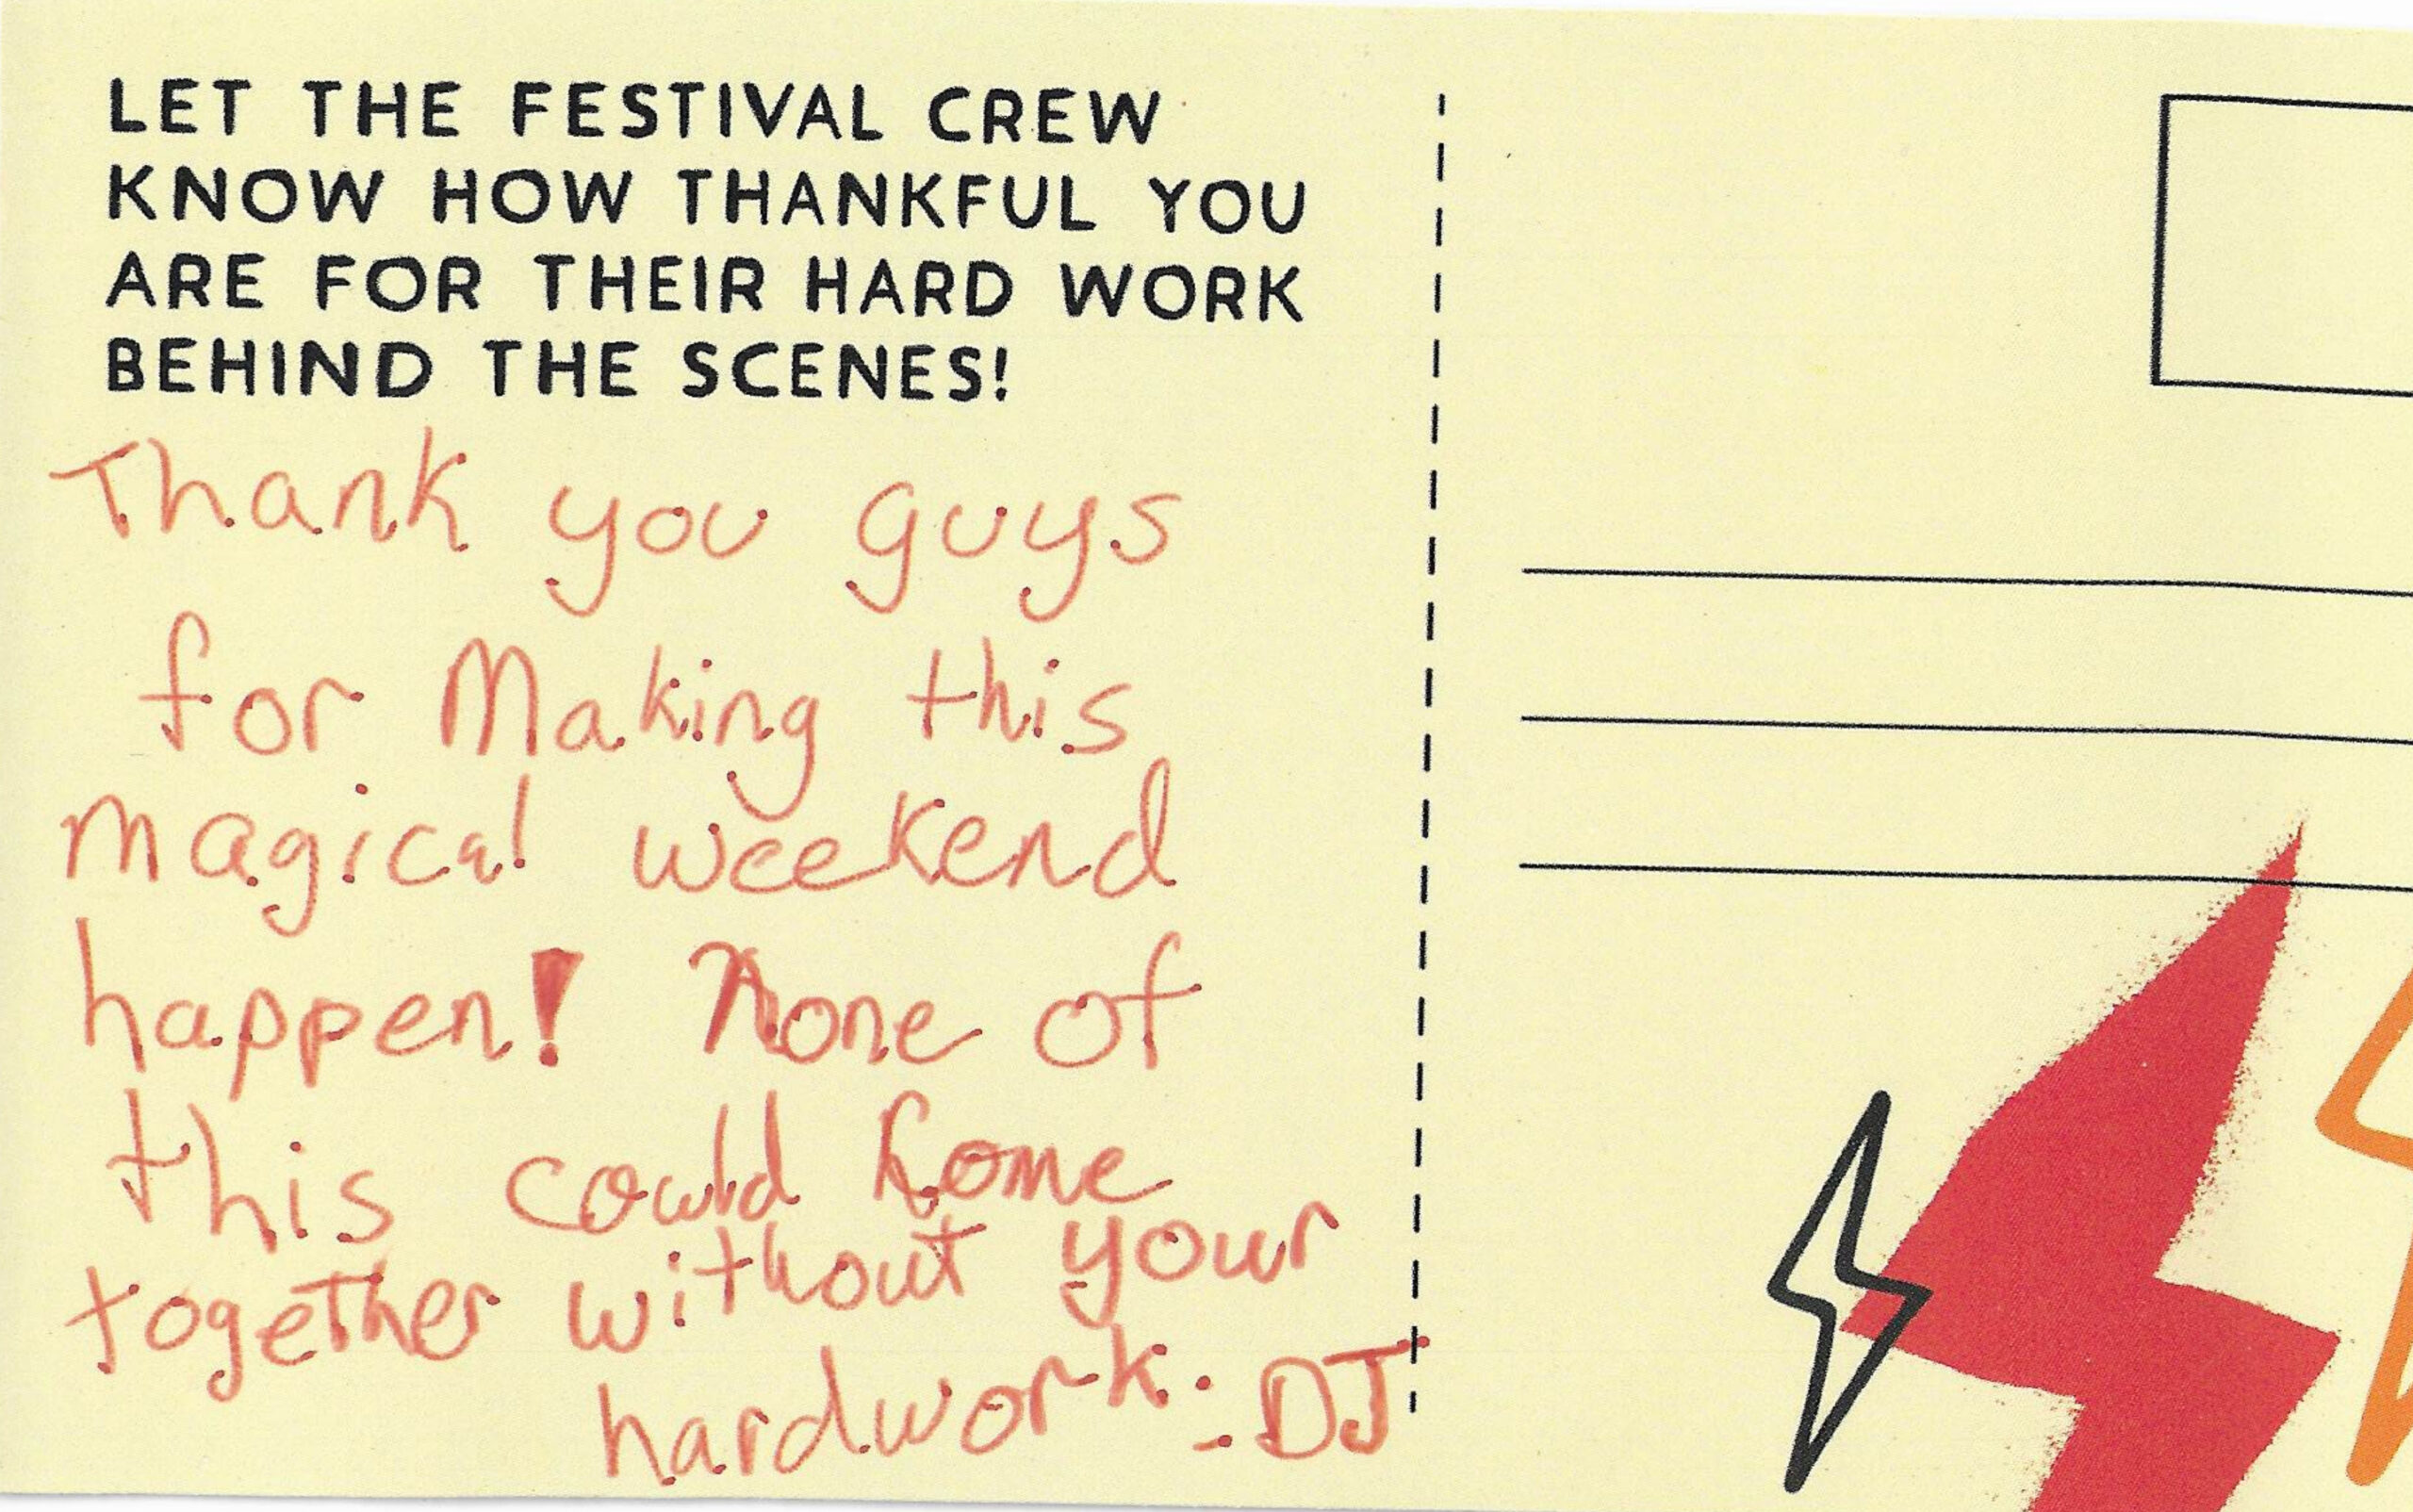 LET THE FESTIVAL CREW
KNOW HOW THANKFUL YOU
ARE FOR THEIR HARD WORK
BEHIND THE SCENES!
Thank you guys
for Making this
magical weekend
happen! None of
this could come
together without your
hardwork. - DJ